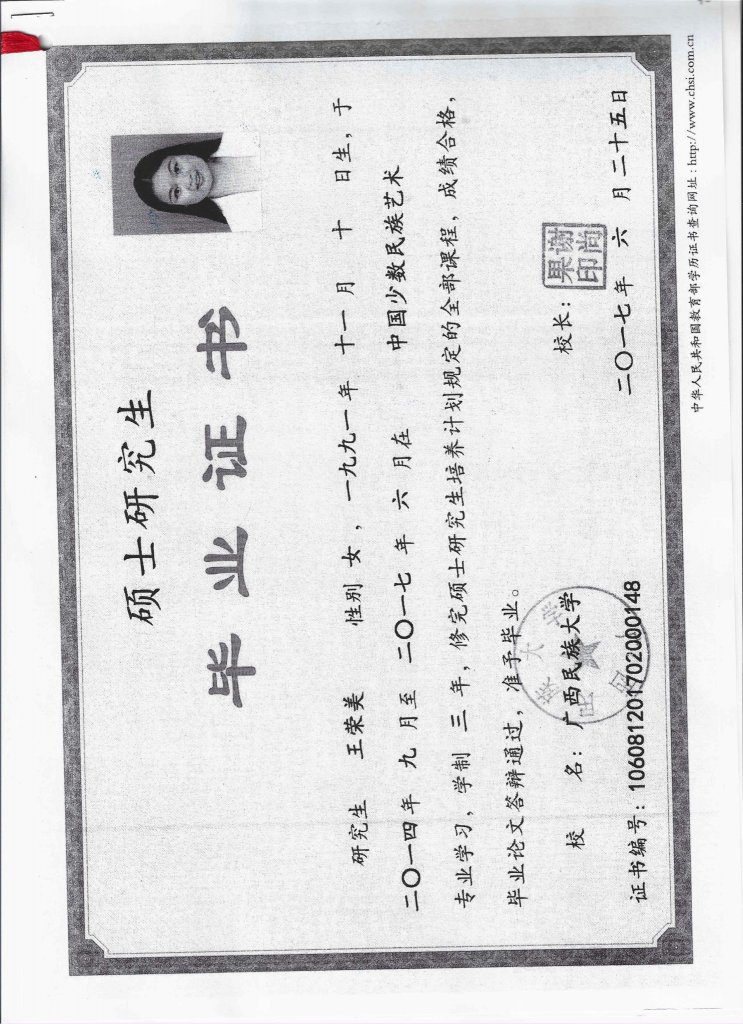 硕士研究生
毕业证书
研究生 王荣美 性别 女，一九九一年 十一月 十 日生，于
二〇一四年 九 月至 二〇一七 年 六 月在 中国少数民族艺术
专业学习，学制 三 年，修完硕士研究生培养计划规定的全部课程，成绩合格，
毕业论文答辩通过，准予毕业。
校 名：广西民族大学
校长：
谢尚果印
证书编号：106081201702000148
二〇一七年 六 月二十五日
中华人民共和国教育部学历证书查询网址：http://www.chsi.com.cn